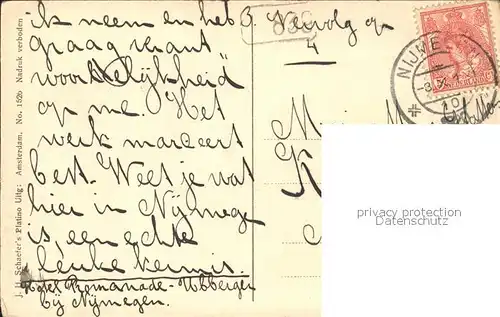 ik neem en heb
graag verant
woordelijkheid
op me. Het
werk marceert
best. Weet je wat
hier in Nijmege
is, een echte
leuke kermis.
Hotel Promenade - Ubbergen
bij Nijmegen.
3. Vervolg op
4
NIJME
J. H. Schaefer's Platino Uitg: Amsterdam. No. 152b Nadruk verboden
privacy protection
Datenschutz